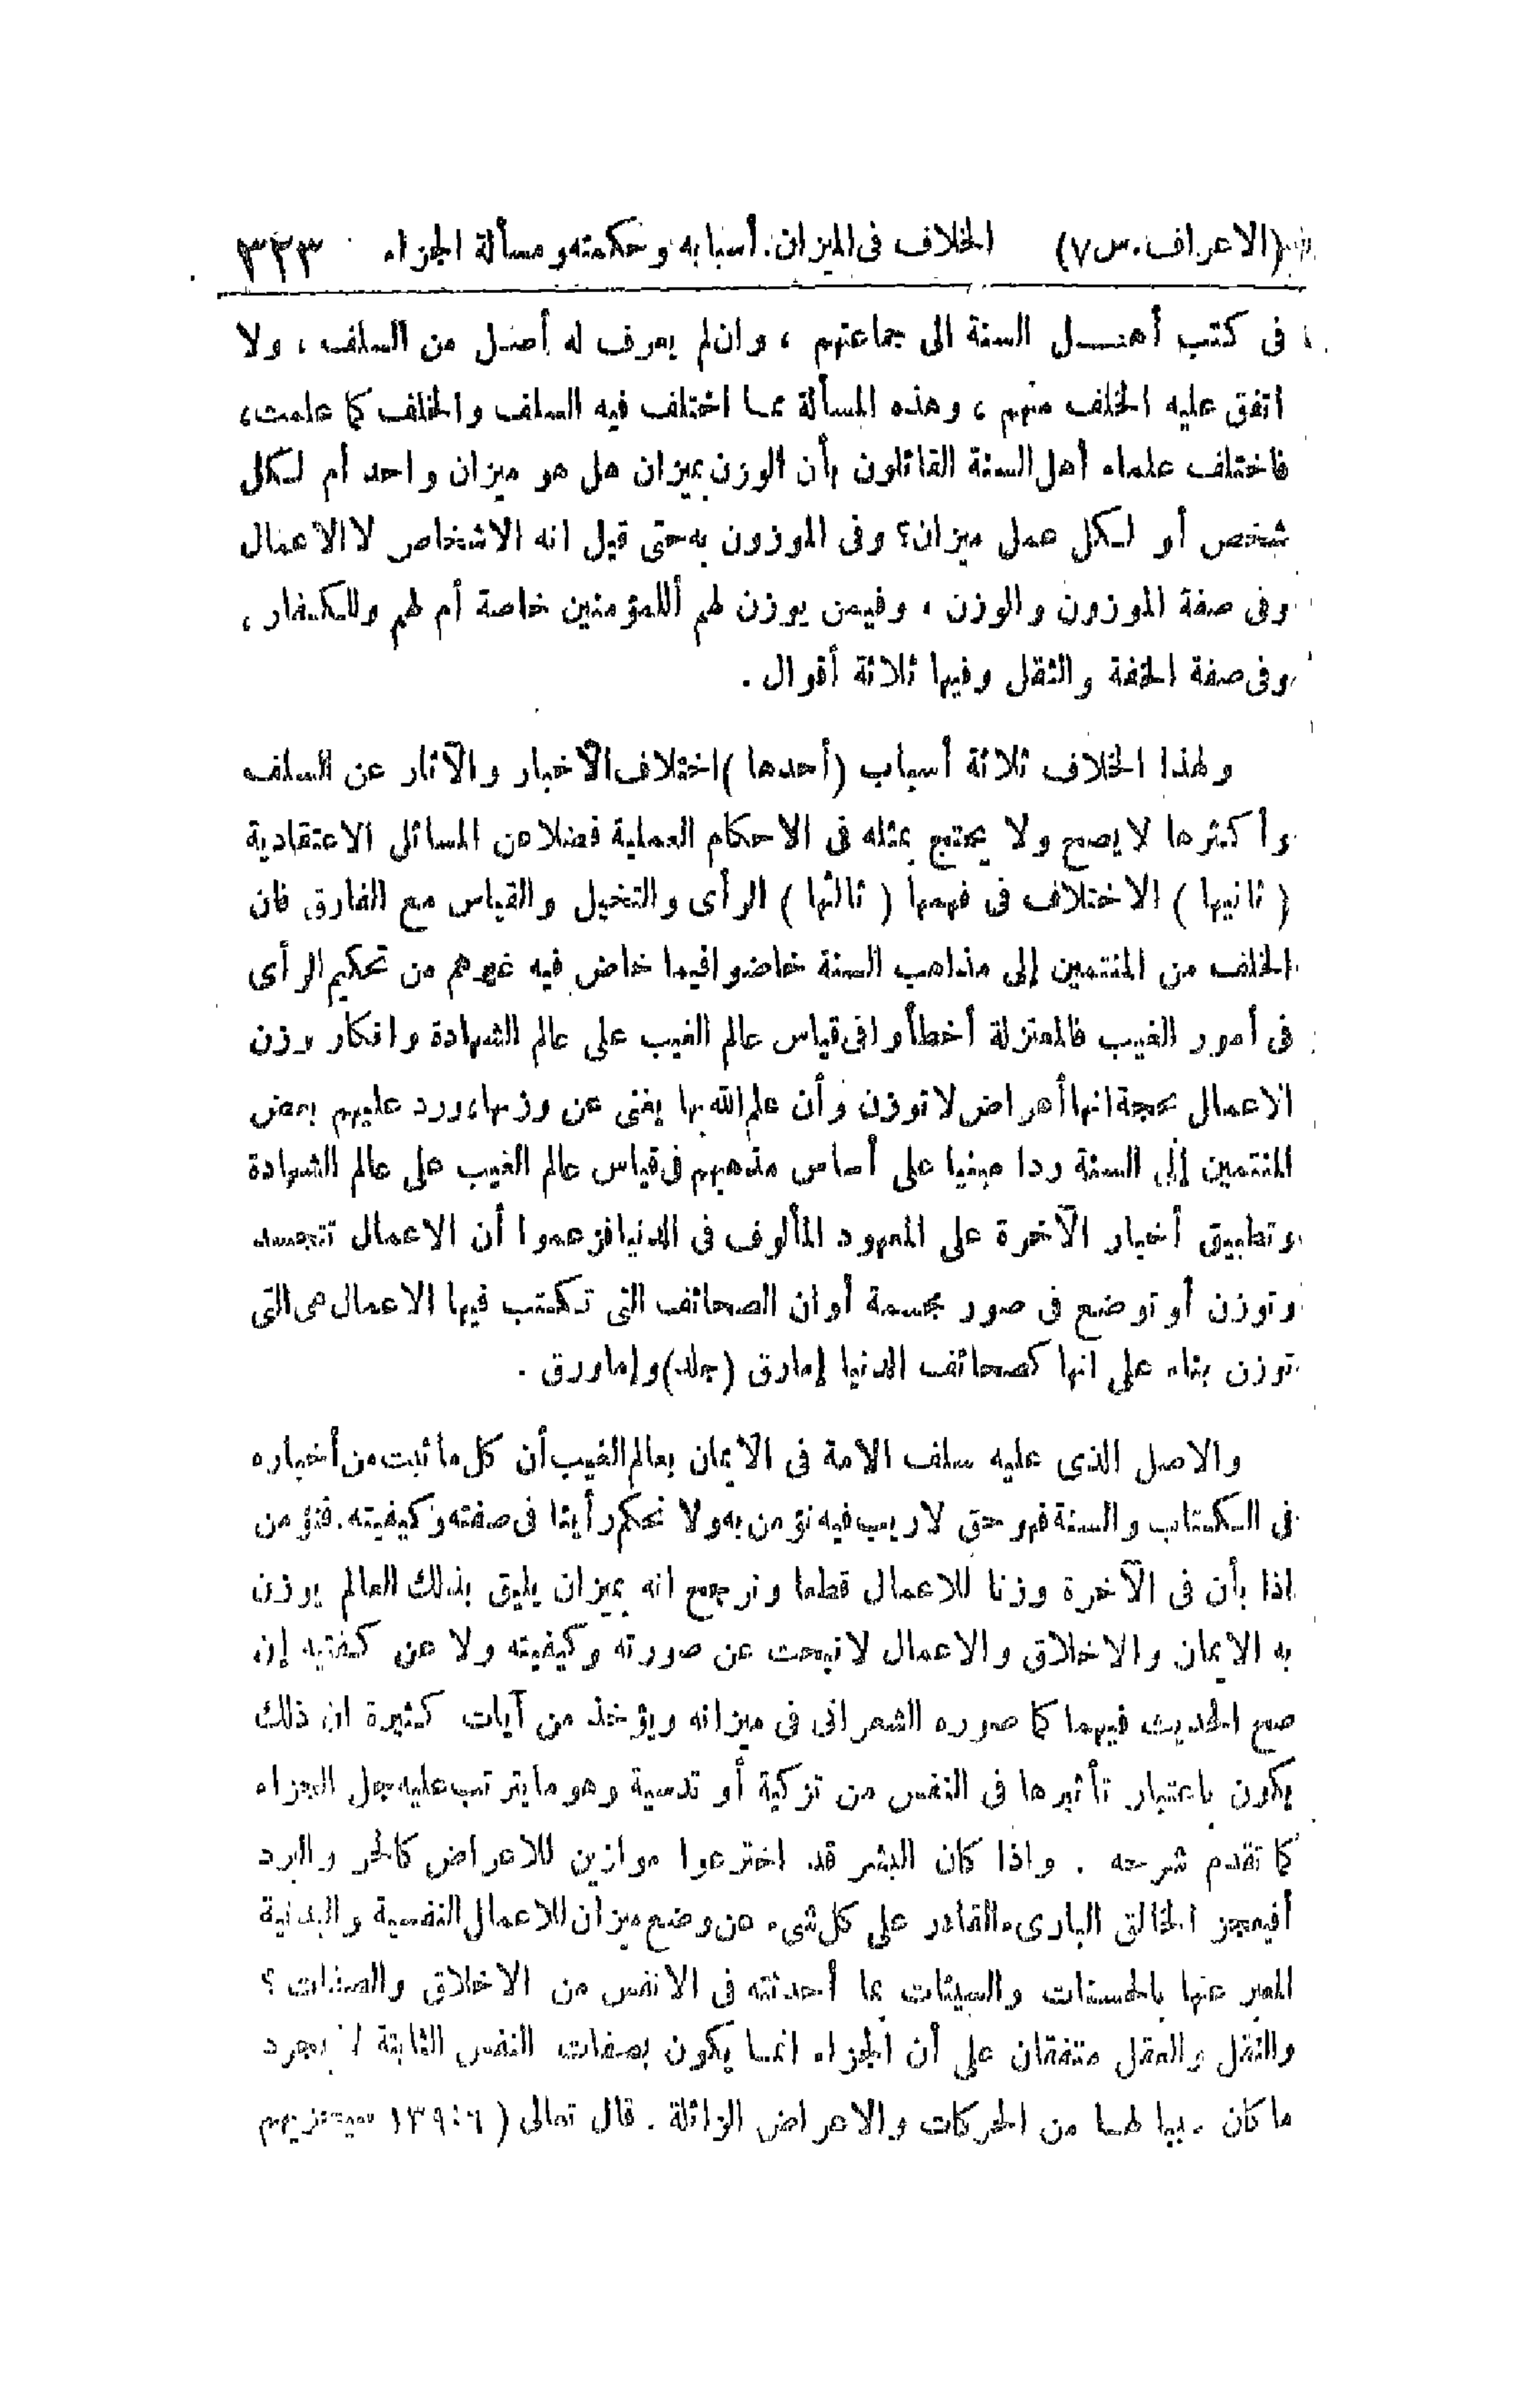 (الاعراف. س٧) الخلاف فى الميزان. أسبابه وحكمته ومسألة الجزاء ٣٢٣
فى كتب أهل السنة الى جماعتهم ، وان لم يعرف له أصل من السلف ، ولا
اتفق عليه الخلف منهم ، وهذه المسألة مما اختلف فيه السلف والخلف كما علمت ،
فاختلف علماء أهل السنة القائلون بأن الوزن بميزان هل هو ميزان واحد أم لكل
شخص أو لكل عمل ميزان؟ وفى الموزون به حتى قيل انه الاشخاص لا الاعمال
وفى صفة الموزون والوزن ، وفيمن يوزن لهم أللمؤمنين خاصة أم لهم وللكفار ،
وفى صفة الخفة والثقل وفيها ثلاثة أقوال .
ولهذا الخلاف ثلاثة أسباب (أحدها) اختلاف الأخبار والآثار عن السلف
وأكثرها لا يصح ولا يحتج بمثله فى الاحكام العملية فضلا عن المسائل الاعتقادية
( ثانيها ) الاختلاف فى فهمها ( ثالثها ) الرأى والتخيل والقياس مع الفارق فان
الخلف من المنتمين إلى مذاهب السنة خاضوا فيما خاض فيه غيرهم من تحكيم الرأى
فى أمور الغيب فالمعتزلة أخطأوا فى قياس عالم الغيب على عالم الشهادة وانكار وزن
الاعمال بحجة انها أعراض لا توزن وأن علم الله بها يغنى عن وزنها، ورد عليهم بعض
المنتمين إلى السنة ردا مبنيا على أساس مذهبهم فى قياس عالم الغيب على عالم الشهادة
وتطبيق أخبار الآخرة على المعهود المألوف فى الدنيا فزعموا أن الاعمال تتجسد
وتوزن أو توضع فى صور مجسمة أو ان الصحائف التى تكتب فيها الاعمال هى التى
توزن بناء على انها كصحائف الدنيا إما رق (جلد) وإما ورق .
والاصل الذى عليه سلف الامة فى الايمان بعالم الغيب أن كل ما ثبت من أخباره
فى الكتاب والسنة فهو حق لا ريب فيه نؤمن به ولا نحكم رأينا فى صفته وكيفيته. فنؤمن
اذا بأن فى الآخرة وزنا للاعمال قطعا ونرجح انه بميزان يليق بذلك العالم يوزن
به الايمان والاخلاق والاعمال لا نبحث عن صورته وكيفيته ولا عن كفتيه إن
صح الحديث فيهما كما صوره الشعرانى فى ميزانه ويؤخذ من آيات كثيرة ان ذلك
يكون باعتبار تأثيرها فى النفس من تزكية أو تدسية وهو ما يترتب عليه جل الجزاء
كما تقدم شرحه . واذا كان البشر قد اخترعوا موازين للاعراض كالحر والبرد
أفيعجز الخالق البارىء القادر على كل شىء عن وضع ميزان للاعمال النفسية والبدنية
المعبر عنها بالحسنات والسيئات بما أحدثته فى الانفس من الاخلاق والصفات ؟
والنقل والعقل متفقان على أن الجزاء انما يكون بصفات النفس الثابتة لا بمجرد
ما كان سببا لها من الحركات والاعراض الزائلة . قال تعالى ( ٦ : ١٣٩ سيجزيهم